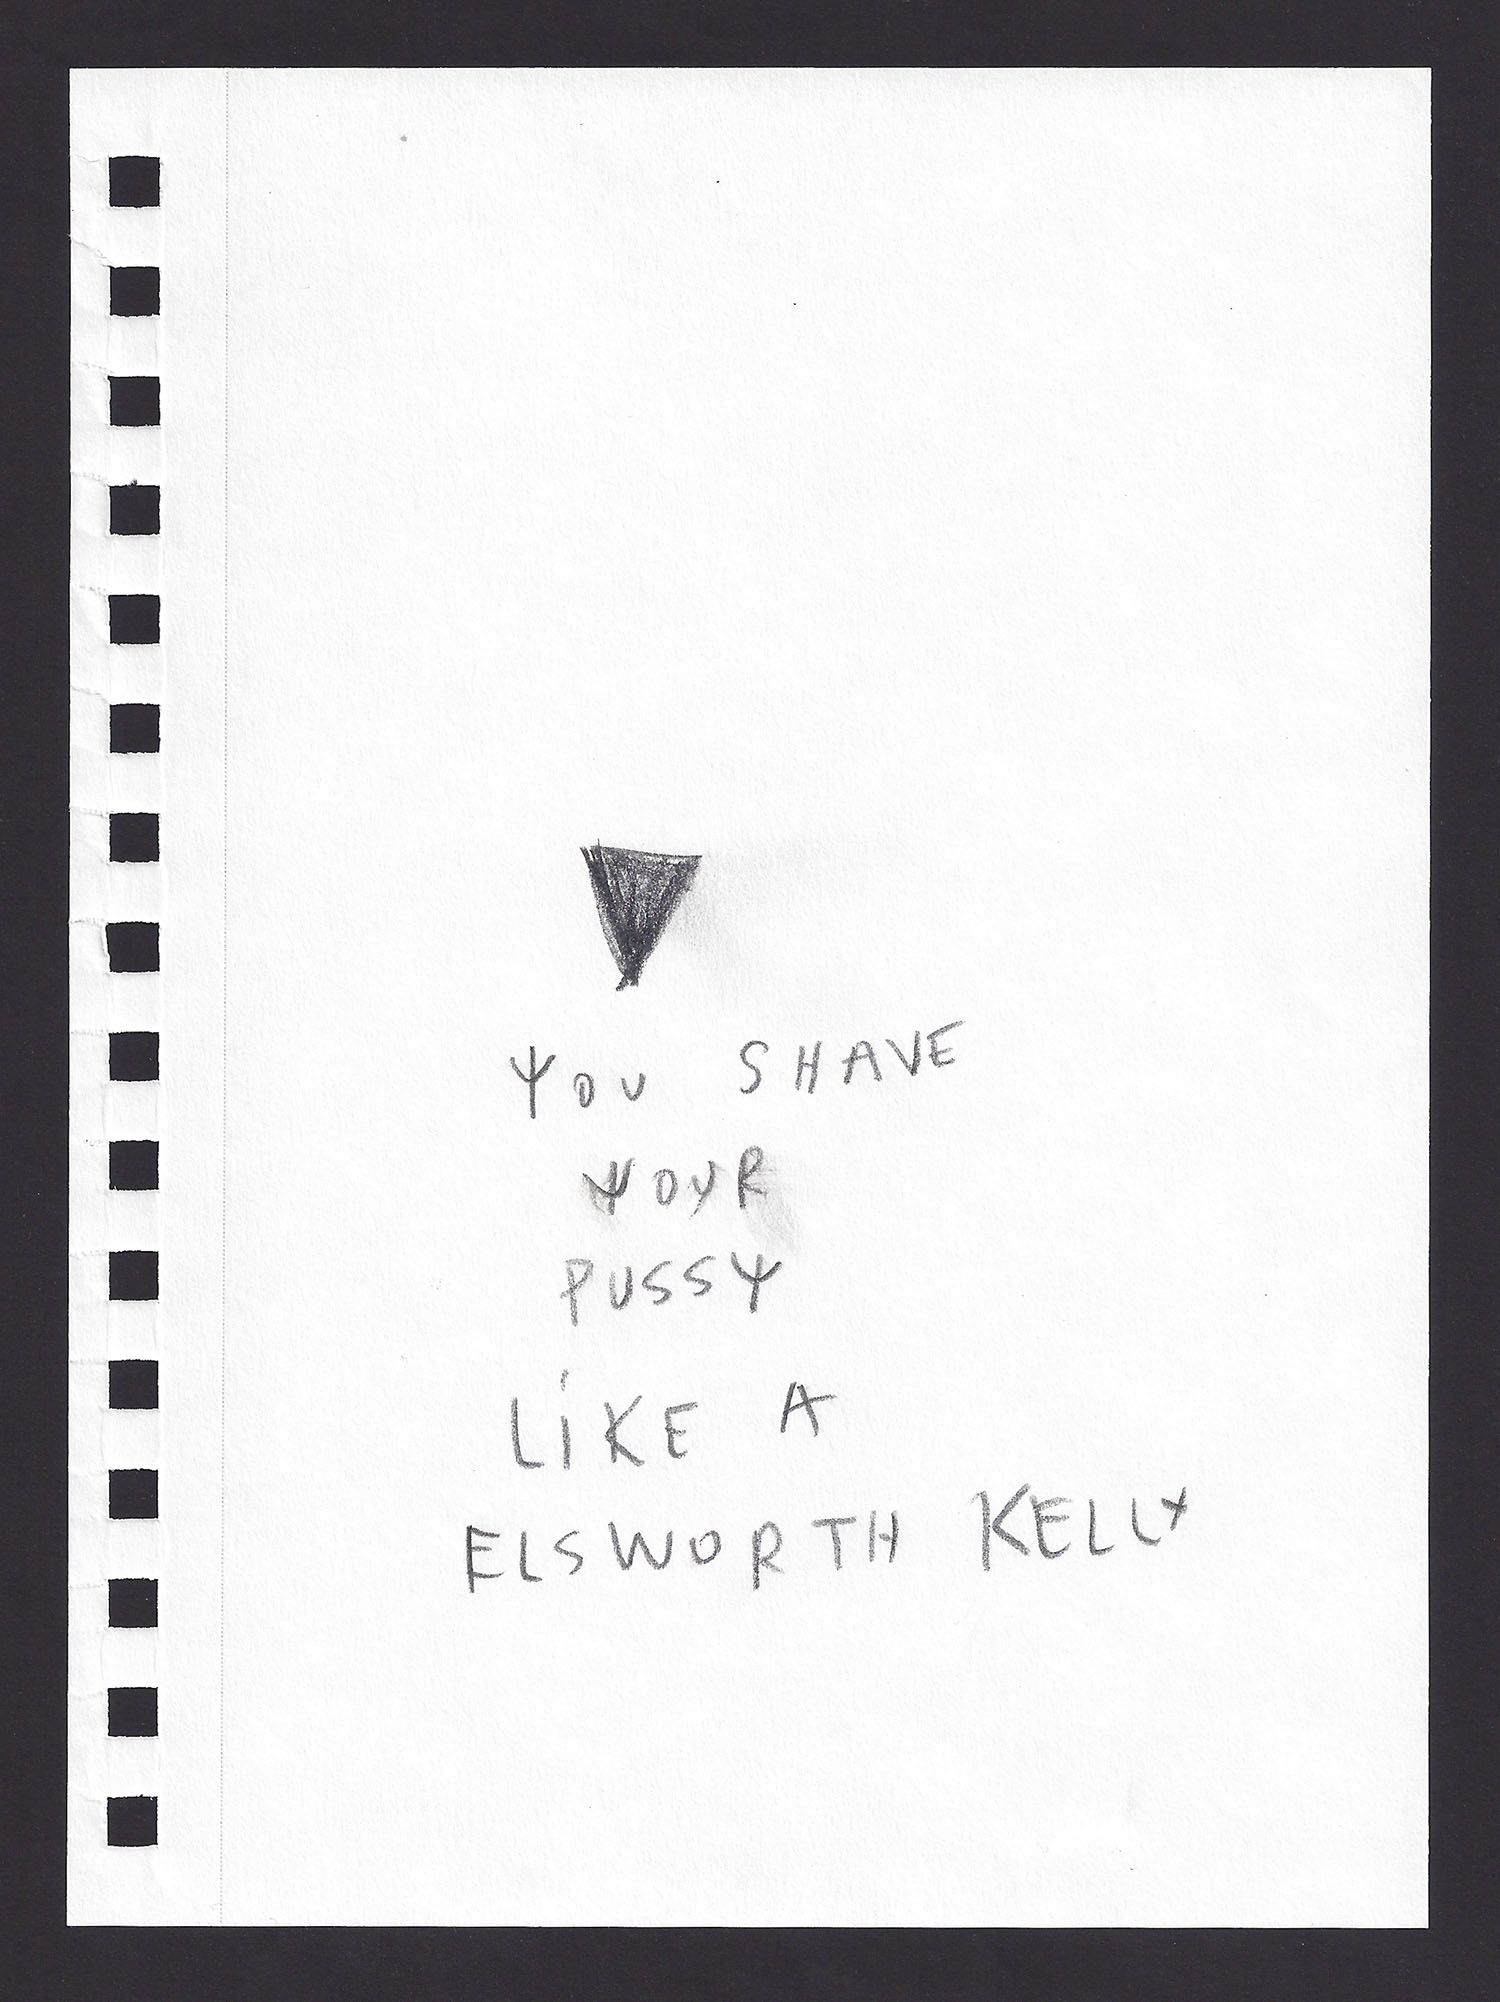 YOU SHAVE
YOUR
PUSSY
LiKE A
ELSWORTH KELLY